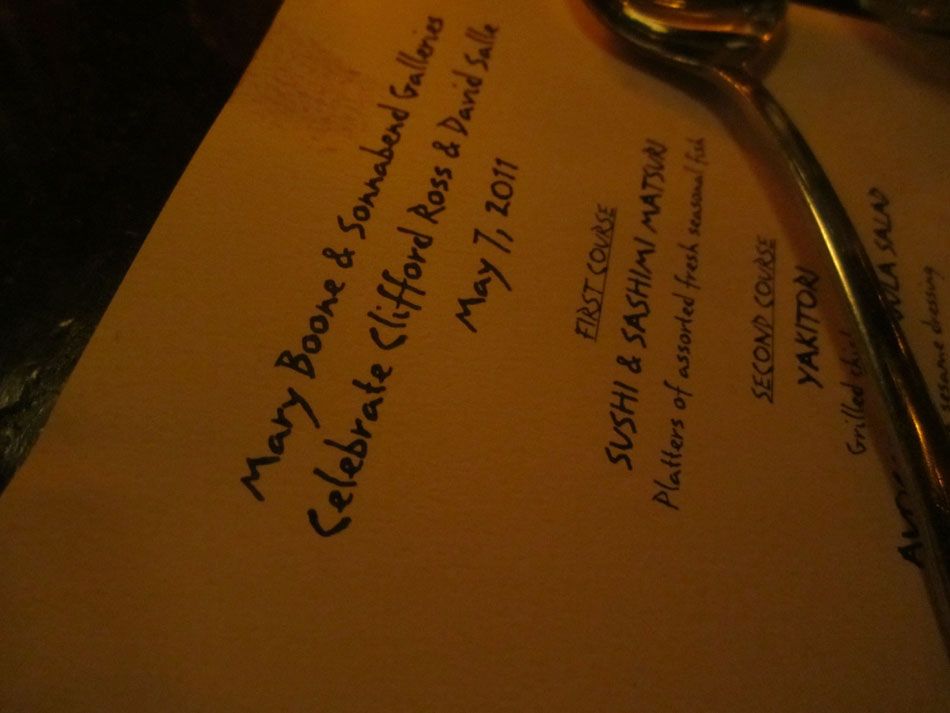 Mary Boone & Sonnabend Galleries
Celebrate Clifford Ross & David Salle
May 7, 2011
FIRST COURSE
SUSHI & SASHIMI MATSURI
Platters of assorted fresh seasonal fish
SECOND COURSE
YAKITORI
Grilled
SALAD
dressing